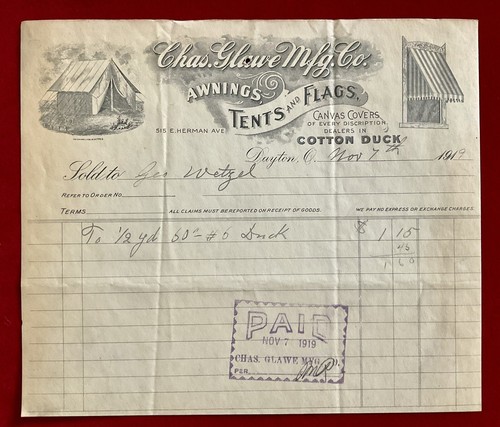 Chas. Glawe Mfg. Co.
AWNINGS
TENTS AND FLAGS,
CANVAS COVERS
OF EVERY DISCRIPTION.
DEALERS IN
COTTON DUCK
515 E. HERMAN AVE
Dayton, O. Nov 7th 1919
Sold to Geo Wetzel
REFER TO ORDER No.
TERMS ALL CLAIMS MUST BE REPORTED ON RECEIPT OF GOODS. WE PAY NO EXPRESS OR EXCHANGE CHARGES.
To 1/2 yd 60" #6 Duck $ 1 15
45
1 60
PAID
NOV 7 1919
CHAS. GLAWE MFG.
PER